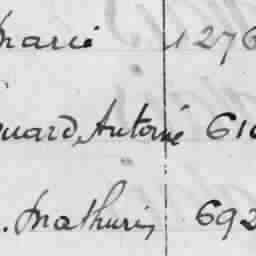 Marie 1276
ouard Antoine 61
. Mathurin 692